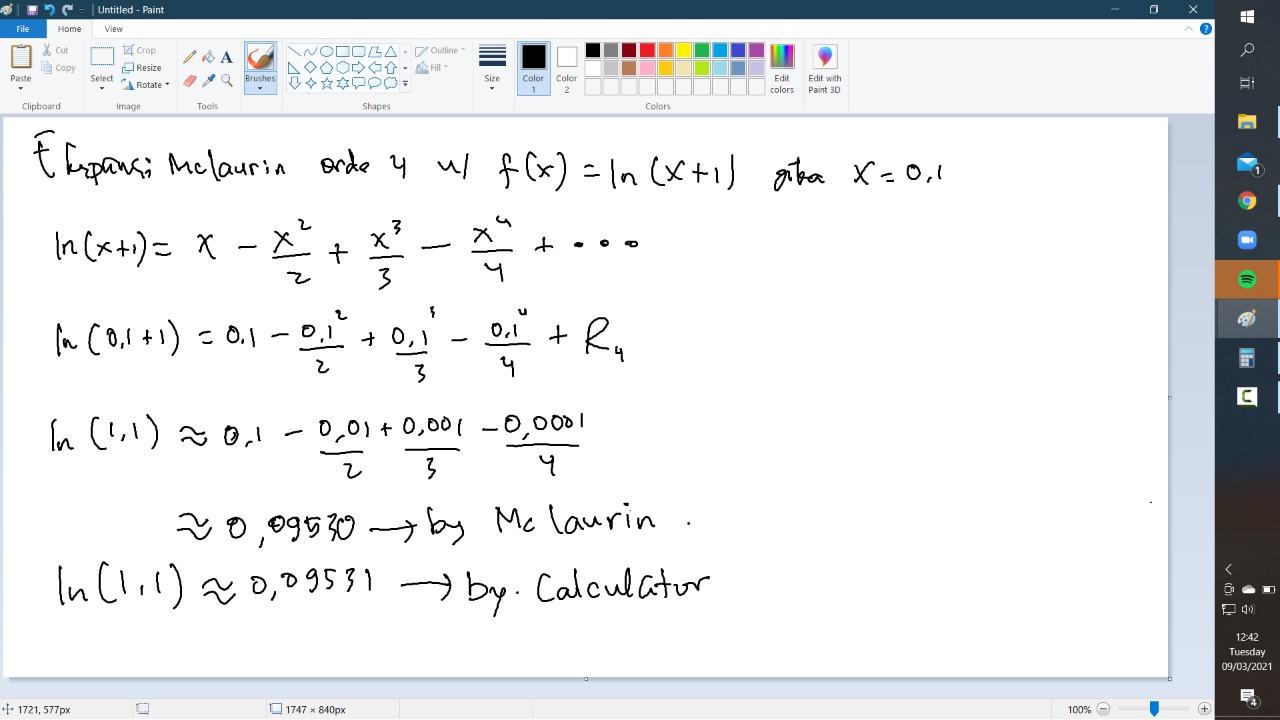 Untitled - Paint
File Home View
Paste
Cut
Copy
Clipboard
Select
Crop
Resize
Rotate
Image
A
Tools
Brushes
Outline
Fill
Shapes
Size
Color 1
Color 2
Edit colors
Edit with Paint 3D
Colors
Ekspansi Mclaurin orde 4 u/ f(x) = ln (x+1) jika x = 0,1
ln(x+1) = x - x²/2 + x³/3 - x⁴/4 + ...
ln (0,1+1) = 0,1 - 0,1²/2 + 0,1³/3 - 0,1⁴/4 + R₄
ln (1,1) ≈ 0,1 - 0,01/2 + 0,001/3 - 0,0001/4
≈ 0,09530 → by Mclaurin .
ln (1,1) ≈ 0,09531 → by. Calculator
1721, 577px
1747 × 840px
100%
1
12:42
Tuesday
09/03/2021
4